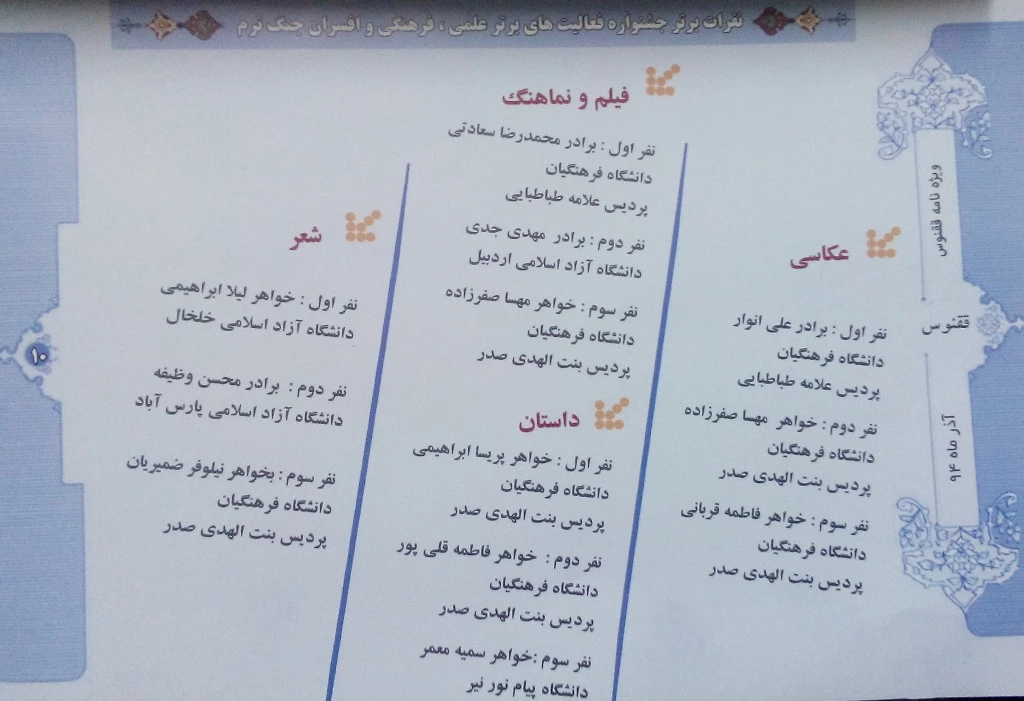 نفرات برتر جشنواره فعالیت های برتر علمی ، فرهنگی و افسران جنگ نرم
ویژه نامه ققنوس
ققنوس
آذر ماه ۹۴
عکاسی
نفر اول : برادر علی انوار
دانشگاه فرهنگیان
پردیس علامه طباطبایی
نفر دوم : خواهر مهسا صفرزاده
دانشگاه فرهنگیان
پردیس بنت الهدی صدر
نفر سوم : خواهر فاطمه قربانی
دانشگاه فرهنگیان
پردیس بنت الهدی صدر
فیلم و نماهنگ
نفر اول : برادر محمدرضا سعادتی
دانشگاه فرهنگیان
پردیس علامه طباطبایی
نفر دوم : برادر مهدی جدی
دانشگاه آزاد اسلامی اردبیل
نفر سوم : خواهر مهسا صفرزاده
دانشگاه فرهنگیان
پردیس بنت الهدی صدر
داستان
نفر اول : خواهر پریسا ابراهیمی
دانشگاه فرهنگیان
پردیس بنت الهدی صدر
نفر دوم : خواهر فاطمه قلی پور
دانشگاه فرهنگیان
پردیس بنت الهدی صدر
نفر سوم :خواهر سمیه معمر
دانشگاه پیام نور نیر
شعر
نفر اول : خواهر لیلا ابراهیمی
دانشگاه آزاد اسلامی خلخال
نفر دوم : برادر محسن وظیفه
دانشگاه آزاد اسلامی پارس آباد
نفر سوم : بخواهر نیلوفر ضمیریان
دانشگاه فرهنگیان
پردیس بنت الهدی صدر
۱۰